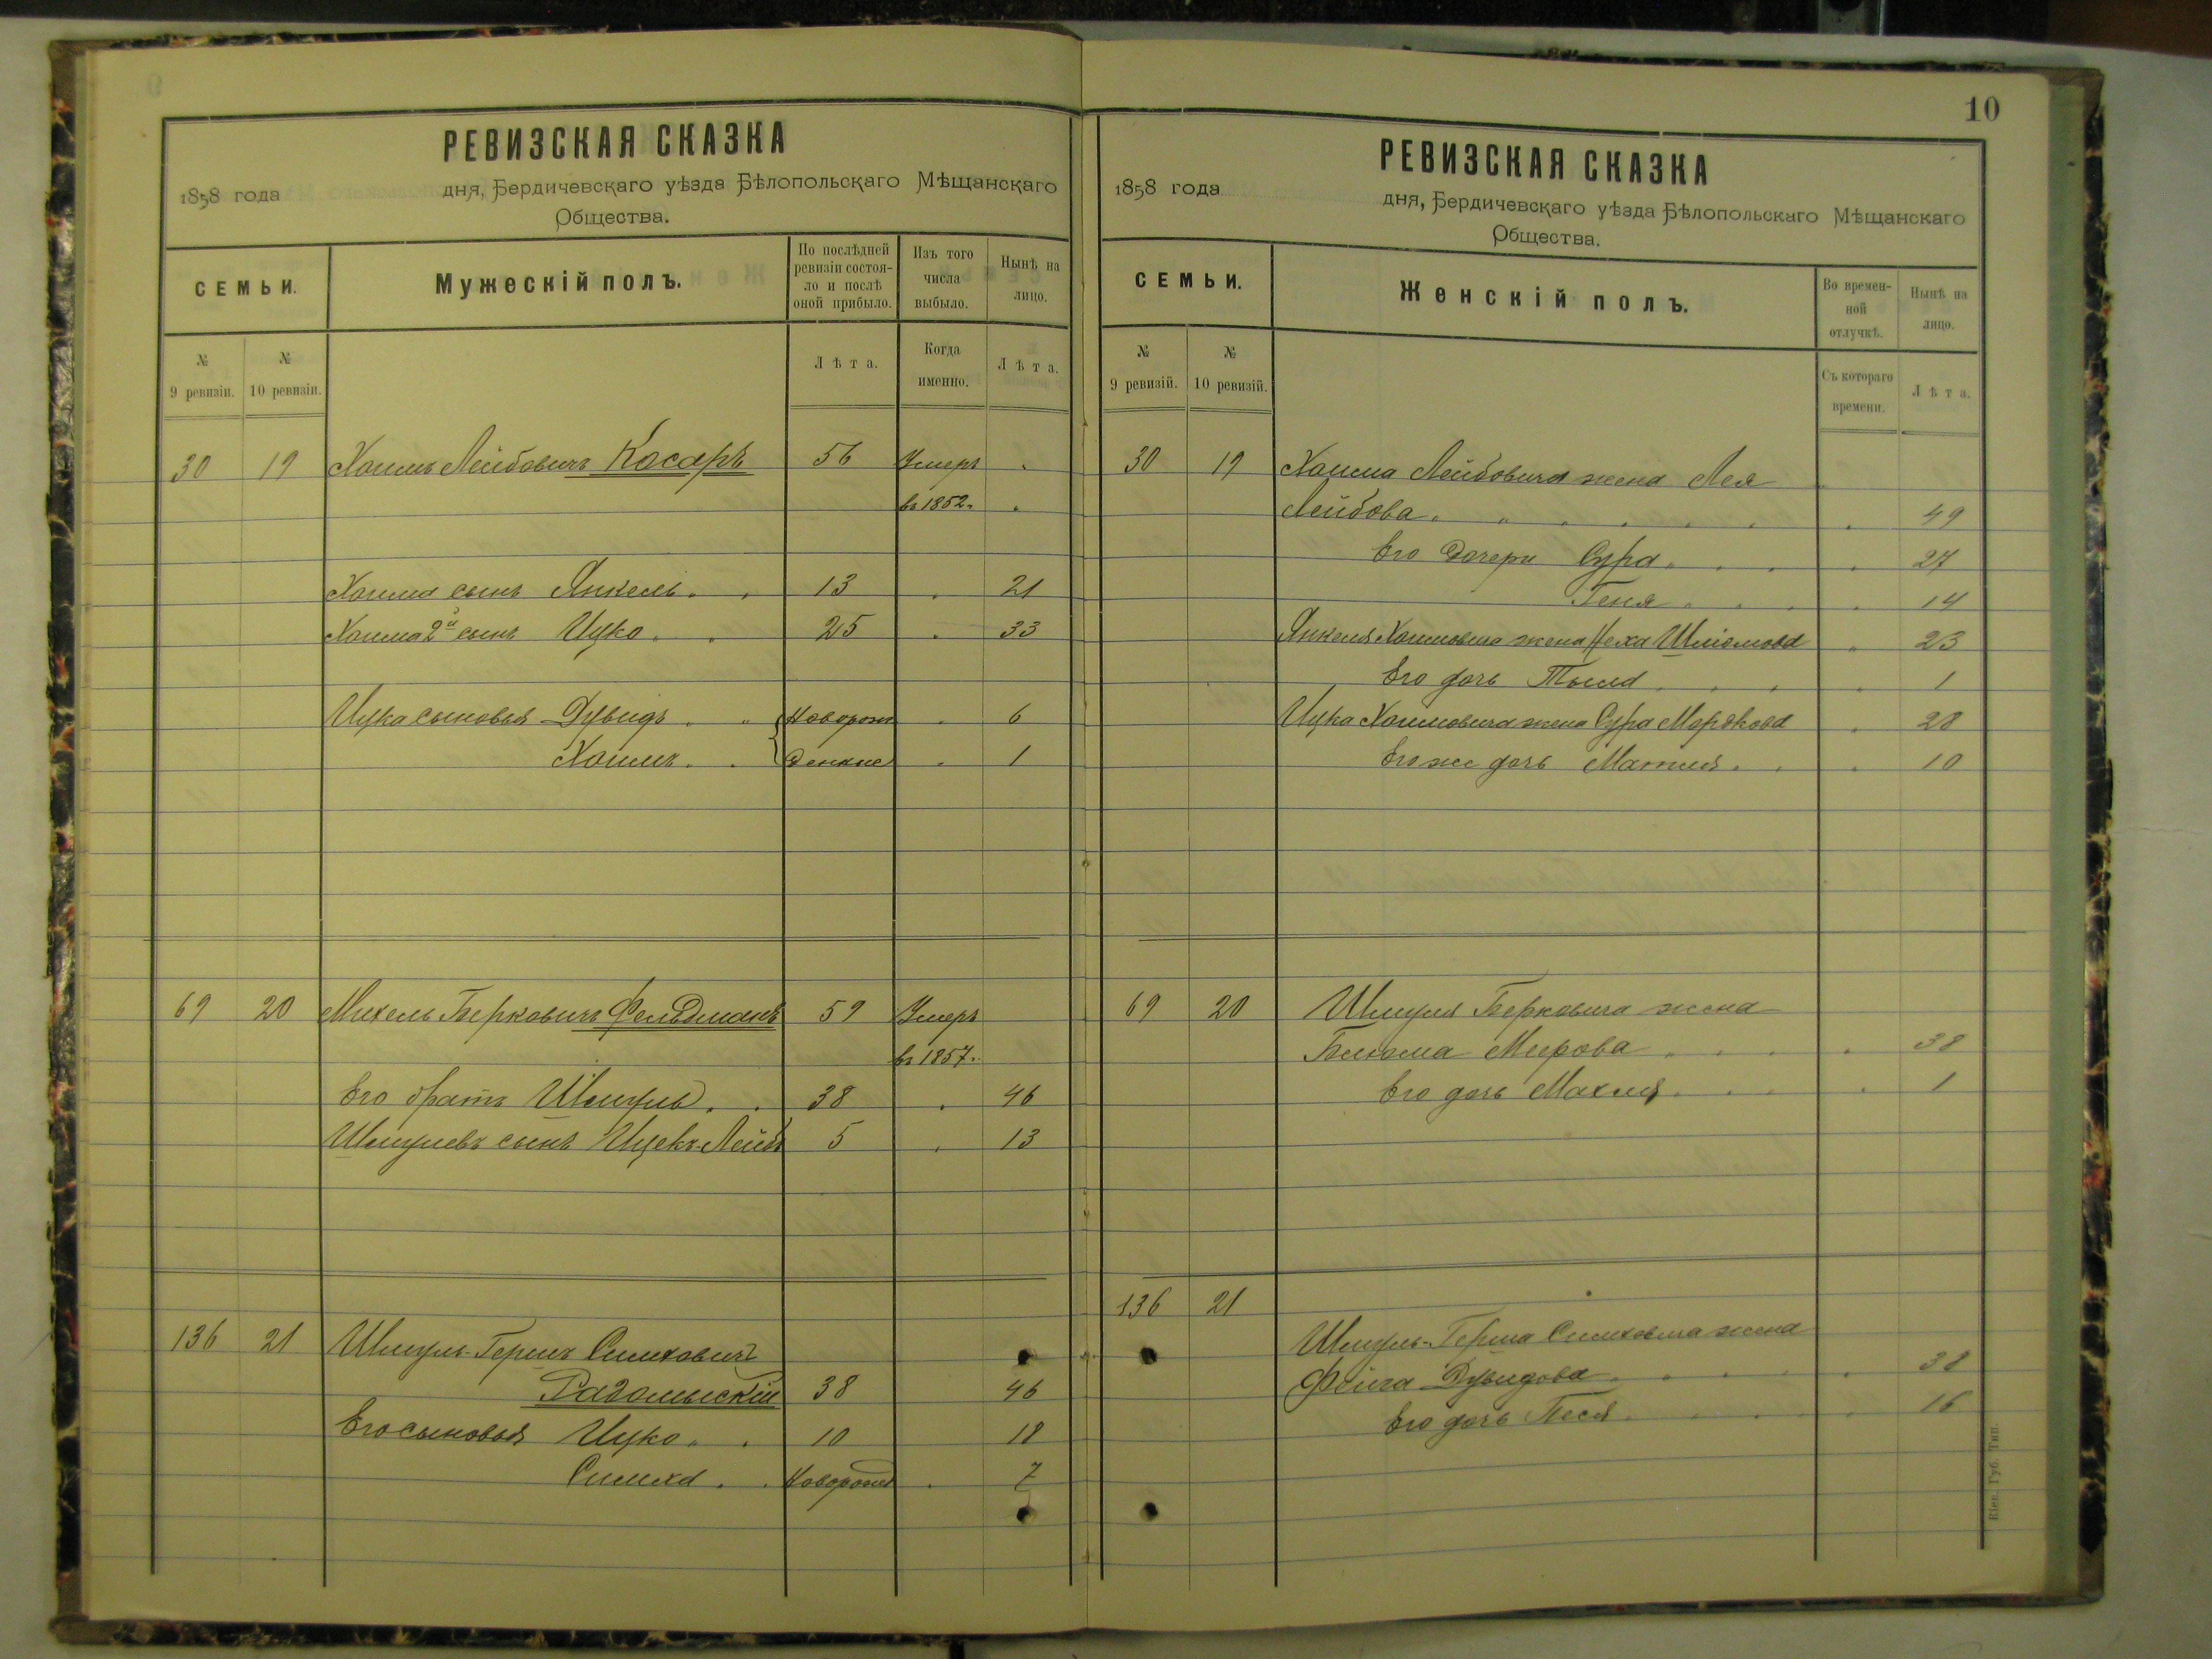 РЕВИЗСКАЯ СКАЗКА
1858 года дня, Бердичевскаго уѣзда Бѣлопольскаго Мѣщанскаго
Общества.
СЕМЬИ.
Мужескій полъ.
По послѣдней ревизіи состоя-ло и послѣ оной прибыло.
Изъ того числа выбыло.
Нынѣ на лицо.
№ 9 ревизіи.
№ 10 ревизіи.
Лѣта.
Когда именно.
Лѣта.
30 19 Хаимъ Лейбовичъ Косаръ 56 Умеръ "
въ 1852. "
Хаима сынъ Янкель 13 " 21
Хаима 2й сынъ Ицко 25 " 33
Ицка сыновья Дувидъ Новорож " 6
Хаимъ денные " 1
69 20 Михель Берковичъ Фельдманъ 59 Умеръ
въ 1857.
Его братъ Шмуль 38 " 46
Шмулевъ сынъ Ицекъ-Лейбъ 5 " 13
136 21 Шмуль-Гершъ Симховичъ
Радомыскій 38 46
Его сыновья Ицко 10 18
Симха Новорожд " 7
10
РЕВИЗСКАЯ СКАЗКА
1858 года дня, Бердичевскаго уѣзда Бѣлопольскаго Мѣщанскаго
Общества.
СЕМЬИ.
Женскій полъ.
Во времен-ной отлучкѣ.
Нынѣ на лицо.
№ 9 ревизій.
№ 10 ревизій.
Съ котораго времени.
Лѣта.
30 19 Хаима Лейбовича жена Лея
Лейбова " 49
Его дочери Сура " 27
Геня " 14
Янкеля Хаимовича жена Неха Шліомова " 23
Его дочь Тыла " 1
Ицка Хаимовича жена Сура Мордкова " 28
Его же дочь Матля " 10
69 20 Шмуля Берковича жена
Блюма Меерова " 38
Его дочь Махля " 1
136 21
Шмуль-Герша Симховича жена
Фейга Дувидова " 38
Его дочь Песя " 16
Кіев. Губ. Тип.